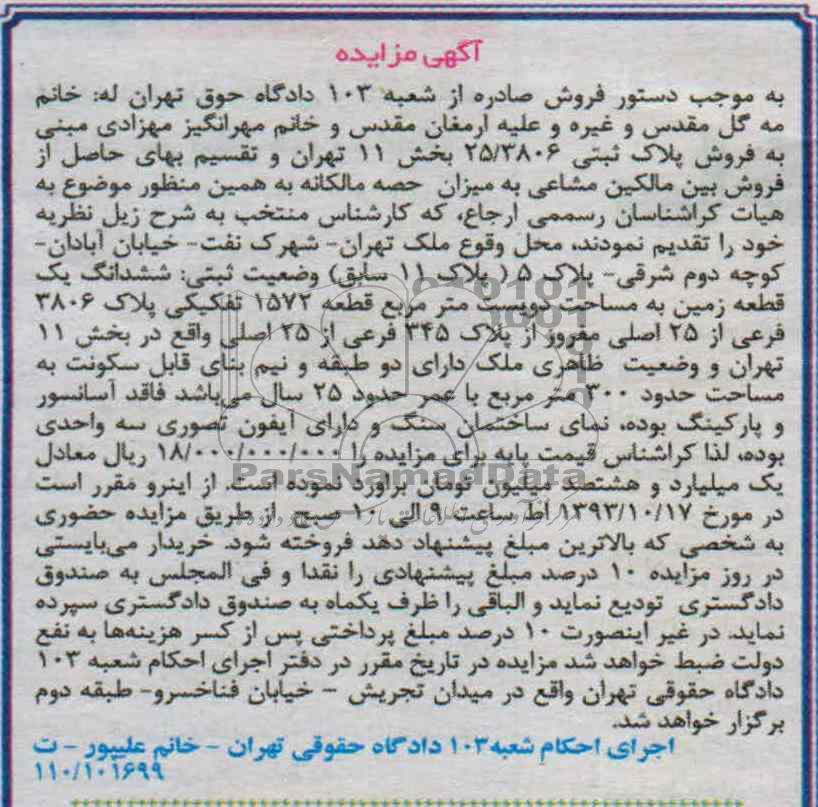 آگهی مزایده
به موجب دستور فروش صادره از شعبه ۱۰۳ دادگاه حوق تهران له: خانم
مه گل مقدس و غیره و علیه ارمغان مقدس و خانم مهرانگیز مهزادی مبنی
به فروش پلاک ثبتی ۲۵/۳۸۰۶ بخش ۱۱ تهران و تقسیم بهای حاصل از
فروش بین مالکین مشاعی به میزان حصه مالکانه به همین منظور موضوع به
هیات کراشناسان رسممی ارجاع، که کارشناس منتخب به شرح زیل نظریه
خود را تقدیم نمودند، محل وقوع ملک تهران- شهرک نفت- خیابان آبادان-
کوچه دوم شرقی- پلاک ۵ ( پلاک ۱۱ سابق) وضعیت ثبتی: ششدانگ یک
قطعه زمین به مساحت دویست متر مربع قطعه ۱۵۷۲ تفکیکی پلاک ۳۸۰۶
فرعی از ۲۵ اصلی مفروز از پلاک ۳۴۵ فرعی از ۲۵ اصلی واقع در بخش ۱۱
تهران و وضعیت ظاهری ملک دارای دو طبقه و نیم بنای قابل سکونت به
مساحت حدود ۳۰۰ متر مربع با عمر حدود ۲۵ سال می‌باشد فاقد آسانسور
و پارکینگ بوده، نمای ساختمان سنگ و دارای آیفون تصوری سه واحدی
بوده، لذا کراشناس قیمت پایه برای مزایده را ۱۸/۰۰۰/۰۰۰/۰۰۰ ریال معادل
یک میلیارد و هشتصد میلیون تومان براورد نموده است. از اینرو مقرر است
در مورخ ۱۳۹۳/۱۰/۱۷ اط ساعت ۹ الی ۱۰ صبح از طریق مزایده حضوری
به شخصی که بالاترین مبلغ پیشنهاد دهد فروخته شود. خریدار می‌بایستی
در روز مزایده ۱۰ درصد مبلغ پیشنهادی را نقدا و فی المجلس به صندوق
دادگستری تودیع نماید و الباقی را ظرف یکماه به صندوق دادگستری سپرده
نماید، در غیر اینصورت ۱۰ درصد مبلغ پرداختی پس از کسر هزینه‌ها به نفع
دولت ضبط خواهد شد مزایده در تاریخ مقرر در دفتر اجرای احکام شعبه ۱۰۳
دادگاه حقوقی تهران واقع در میدان تجریش - خیابان فناخسرو- طبقه دوم
برگزار خواهد شد.
اجرای احکام شعبه ۱۰۳ دادگاه حقوقی تهران - خانم علیپور - ت
۱۱۰/۱۰۱۶۹۹
ParsNamadData